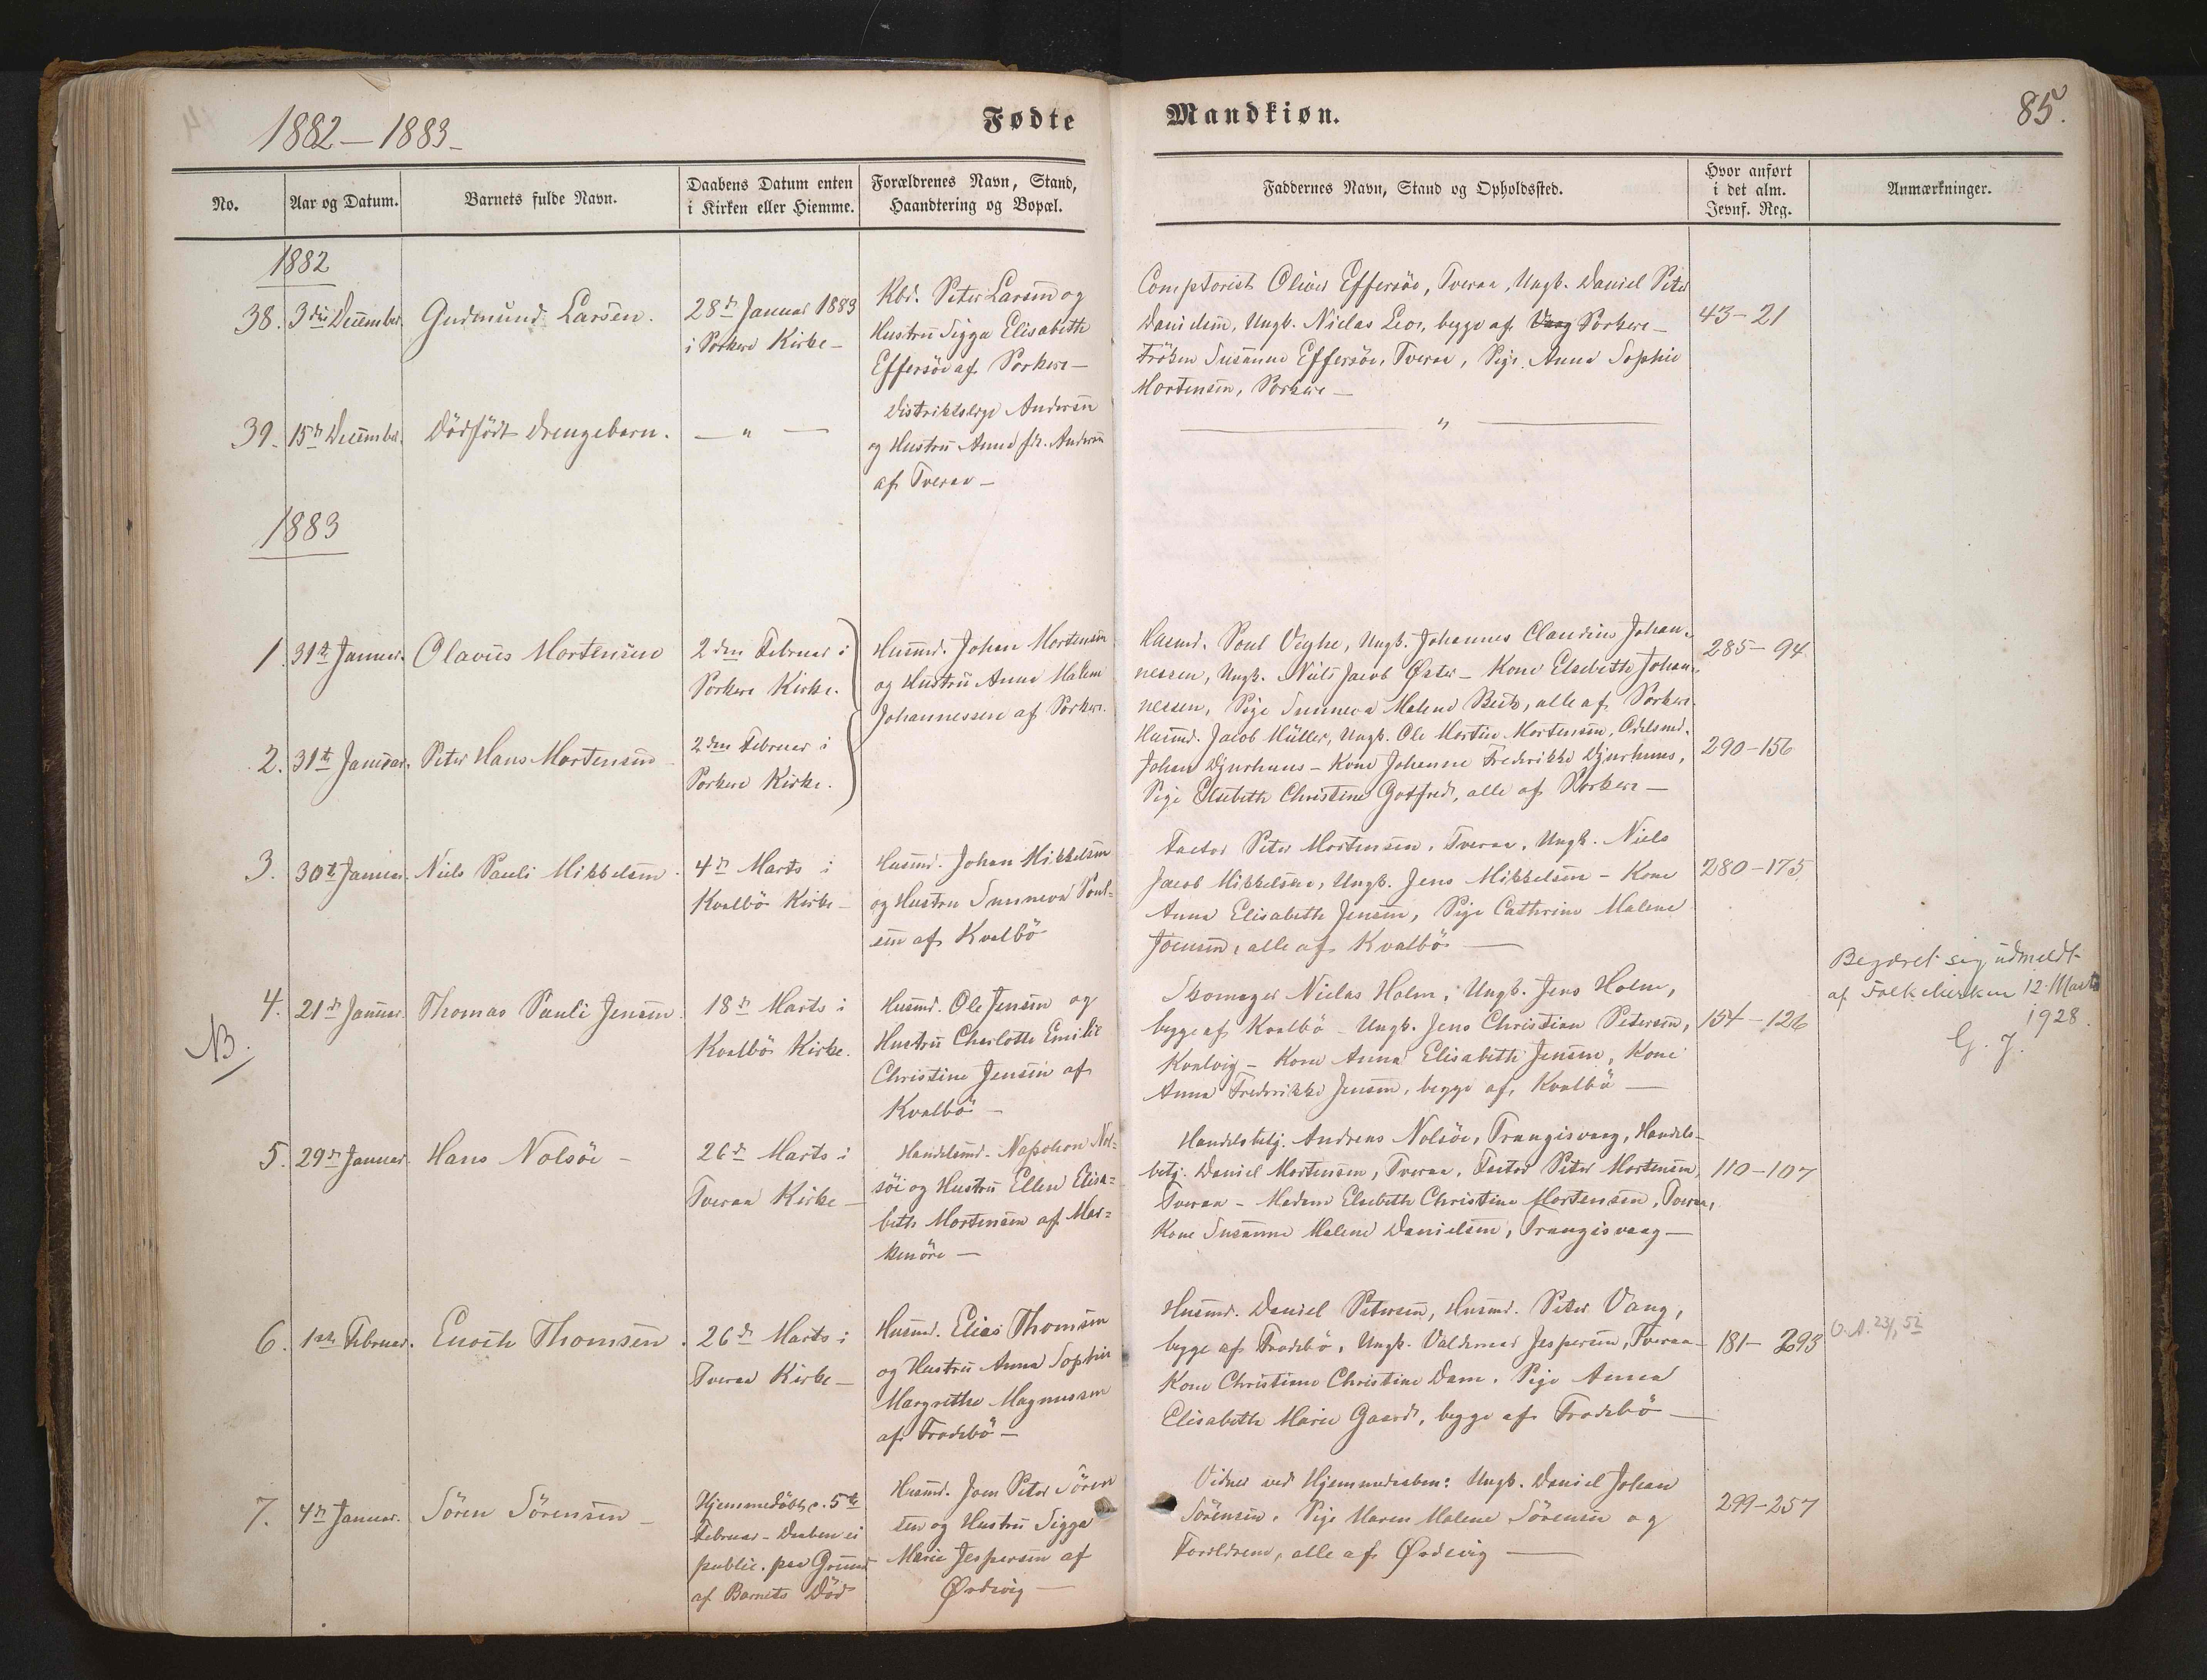 1882–1883
Fødte
Mandkiøn.
85.
No.
Aar og Datum.
Barnets fulde Navn.
Daabens Datum enten
i Kirken eller Hiemme.
Forældrenes Navn, Stand,
Haandtering og Bopæl.
Faddernes Navn, Stand og Opholdssted.
Hvor anført
i det alm.
Jevnf. Reg.
Anmærkninger.
1882
38. 3die December. Gudmund Larsen.
28de Januar 1883
i Porkere Kirke –
Kbd. Peter Larsen og
Hustru Sigga Elisabeth
Effersöe af Porkere –
Comptorist Oliver Effersöe, Tveraa, Ungk. Daniel Peter
Danielsen, Ungk. Niclas Leo, begge af Vaag Porkere –
Fröken Susanne Effersöe, Tveraa, Pige Anna Sophie
Mortensen, Porkere –
43–21
39. 15de December. Dödfödt Drengebarn.
— " —
Distriktslæge Andersen
og Hustru Anna f. Andersen
af Tveraa –
— " —
1883
1. 31te Januar. Olavus Mortensen
2den Februar i
Porkere Kirke.
Huusmd. Johan Mortensen
og Hustru Anna Malene
Johannessen af Porkere.
Huusmd. Poul Veyhe, Ungk. Johannes Claudius Johan-
nessen, Ungk. Niels Jacob Øster – Kone Elsebeth Johan-
nessen, Pige Sunneva Malene Beck, alle af Porkere.
285–94
2. 31te Januar. Peter Hans Mortensen –
2den Februar i
Porkere Kirke.
Huusmd. Jacob Müller, Ungk. Ole Martin Mortensen, Odelsmd.
Johan Djurhuus – Kone Johanne Frederikke Djurhuus,
Pige Elsebeth Christine Gotfred, alle af Porkere –
290–156
3. 30te Januar. Niels Pauli Mikkelsen.
4de Marts i
Kvalbö Kirke –
Huusmd. Johan Mikkelsen
og Hustru Sunneva Poul-
sen af Kvalbö
Factor Peter Mortensen, Tveraa, Ungk. Niels
Jacob Mikkelsen, Ungk. Jens Mikkelsen – Kone
Anna Elisabeth Jensen, Pige Cathrine Malene
Joensen, alle af Kvalbö –
280–175.
4. 21de Januar. Thomas Pauli Jensen.
NB.
18de Marts i
Kvalbö Kirke.
Huusmd. Ole Jensen og
Hustru Charlotte Emilie
Christine Jensen af
Kvalbö –
Skomager Niclas Holm, Ungk. Jens Holm,
begge af Kvalbö – Ungk. Jens Christian Petersen,
Kvalvig – Kone Anna Elisabeth Jensen, Kone
Anna Frederikke Jensen, begge af Kvalbö –
154–126
Begæret sig udmeldt
af Folkekirken 12. Marts
1928.
G. J.
5. 29de Januar. Hans Nolsöe –
26de Marts i
Tveraa Kirke –
Handelsmd. Napoleon Nol-
söe og Hustru Ellen Elisa-
beth Mortensen af Mar-
kenöre –
Handelsbetj. Andreas Nolsöe, Trangisvaag, Handels-
betj. Daniel Mortensen, Tveraa, Factor Peter Mortensen,
Tveraa – Madam Elsebeth Christine Mortensen, Tveraa,
Kone Susanne Malene Danielsen, Trangisvaag –
110–107
6. 1ste Februar. Enoch Thomsen.
26de Marts i
Tveraa Kirke –
Huusmd. Elias Thomsen
og Hustru Anna Sophie
Margrethe Magnussen
af Frodebö –
Huusmd. Daniel Petersen, Huusmd. Peter Vang,
begge af Frodebö, Ungk. Valdemar Jespersen, Tveraa –
Kone Christiane Christine Dam, Pige Anna
Elisabeth Marie Gaard, begge af Frodebö –
181–293
7. 4de Januar. Sören Sörensen –
Hjemmedöbt d. 5te
Februar – Daaben ei
public. paa Grund
af Barnets Död
Huusmd. Joen Peter Sören-
sen og Hustru Sigga
Marie Jespersen af
Ørdevig –
Vidner ved Hjemmedaaben: Ungk. Daniel Johan
Sörensen, Pige Maren Malene Sörensen og
Forældrene, alle af Ørdevig –
299–257